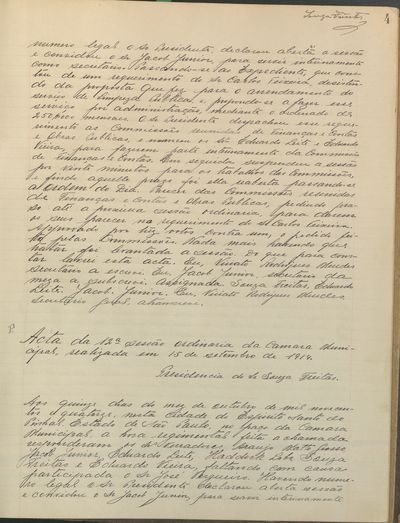 4
numero legal o Sr. Presidente declarou aberta a sessão
e convidou o Sr. Jacob Junior, para servir interinamente
como secretario. Passando-se ao Expediente, que
de um requerimento de Sr. Carlos Teixeira, desistin
do da proposta que fez para o arrendamento do
serviço de limpeza publica e propondo-se a fazer esse
serviço por administração, mediante o ordenado de
250,000 mensaes. O Sr. Presidente despachou esse reque
rimento as Commissões reunidas de Finanças e Contas
e Obras Publicas, e nomeou os Srs. Eduardo Leite e Eduardo
Vieira, para fazerem parte interinamente da Commissão
de Finanças e Contas. Em seguida suspendeu a sessão
por vinte minutos para os trabalhos das Commissões,
e findo aquelle prazo foi ella reaberta passando-se
a Ordem do Dia. Parecer das Commissões reunidas
de Finanças e Contas e Obras Publicas, pedindo pra-
so até a proxima sessão ordinaria, para darem
os seus parecer no requerimento de Sr. Carlos Teixeira.
Approvado por tres votos contra um, o pedido fei-
to pelas Commissões. Nada mais havendo a
tratar foi levantada a sessão. Do que para cons-
tar lavrei esta acta. Eu, Rodrigues Mendes
secretario a escrevi. Eu, Jacob Junior, secretario da
meza a subscrevi. Assignados Souza Freitas, Eduardo
Leite, Jacob Junior. Eu, Rodrigues Mendes,
secretario
Acta da 12ª sessão ordinaria da Camara Muni-
cipal, realizada em 15 de setembro de 1914.
Presidencia do Sr. Souza Freitas.
Aos quinze dias do mez de outubro de mil novecen-
tos e quatorze, nesta cidade de Espirito Santo do
Pinhal, Estado de São Paulo, no paço da Camara
Municipal, a hora regimental feita a chamada
responderam os Srs. Vereadores Araujo Motta Junior
Jacob Junior, Eduardo Leite, Haddock Lobo, Souza
Freitas e Eduardo Vieira, faltando com causa
participada o Sr. José Vergueiro. Havendo nume-
ro legal o Sr. Presidente declarou aberta sessão
e convidou o Sr. Jacob Junior, para servir interinamente